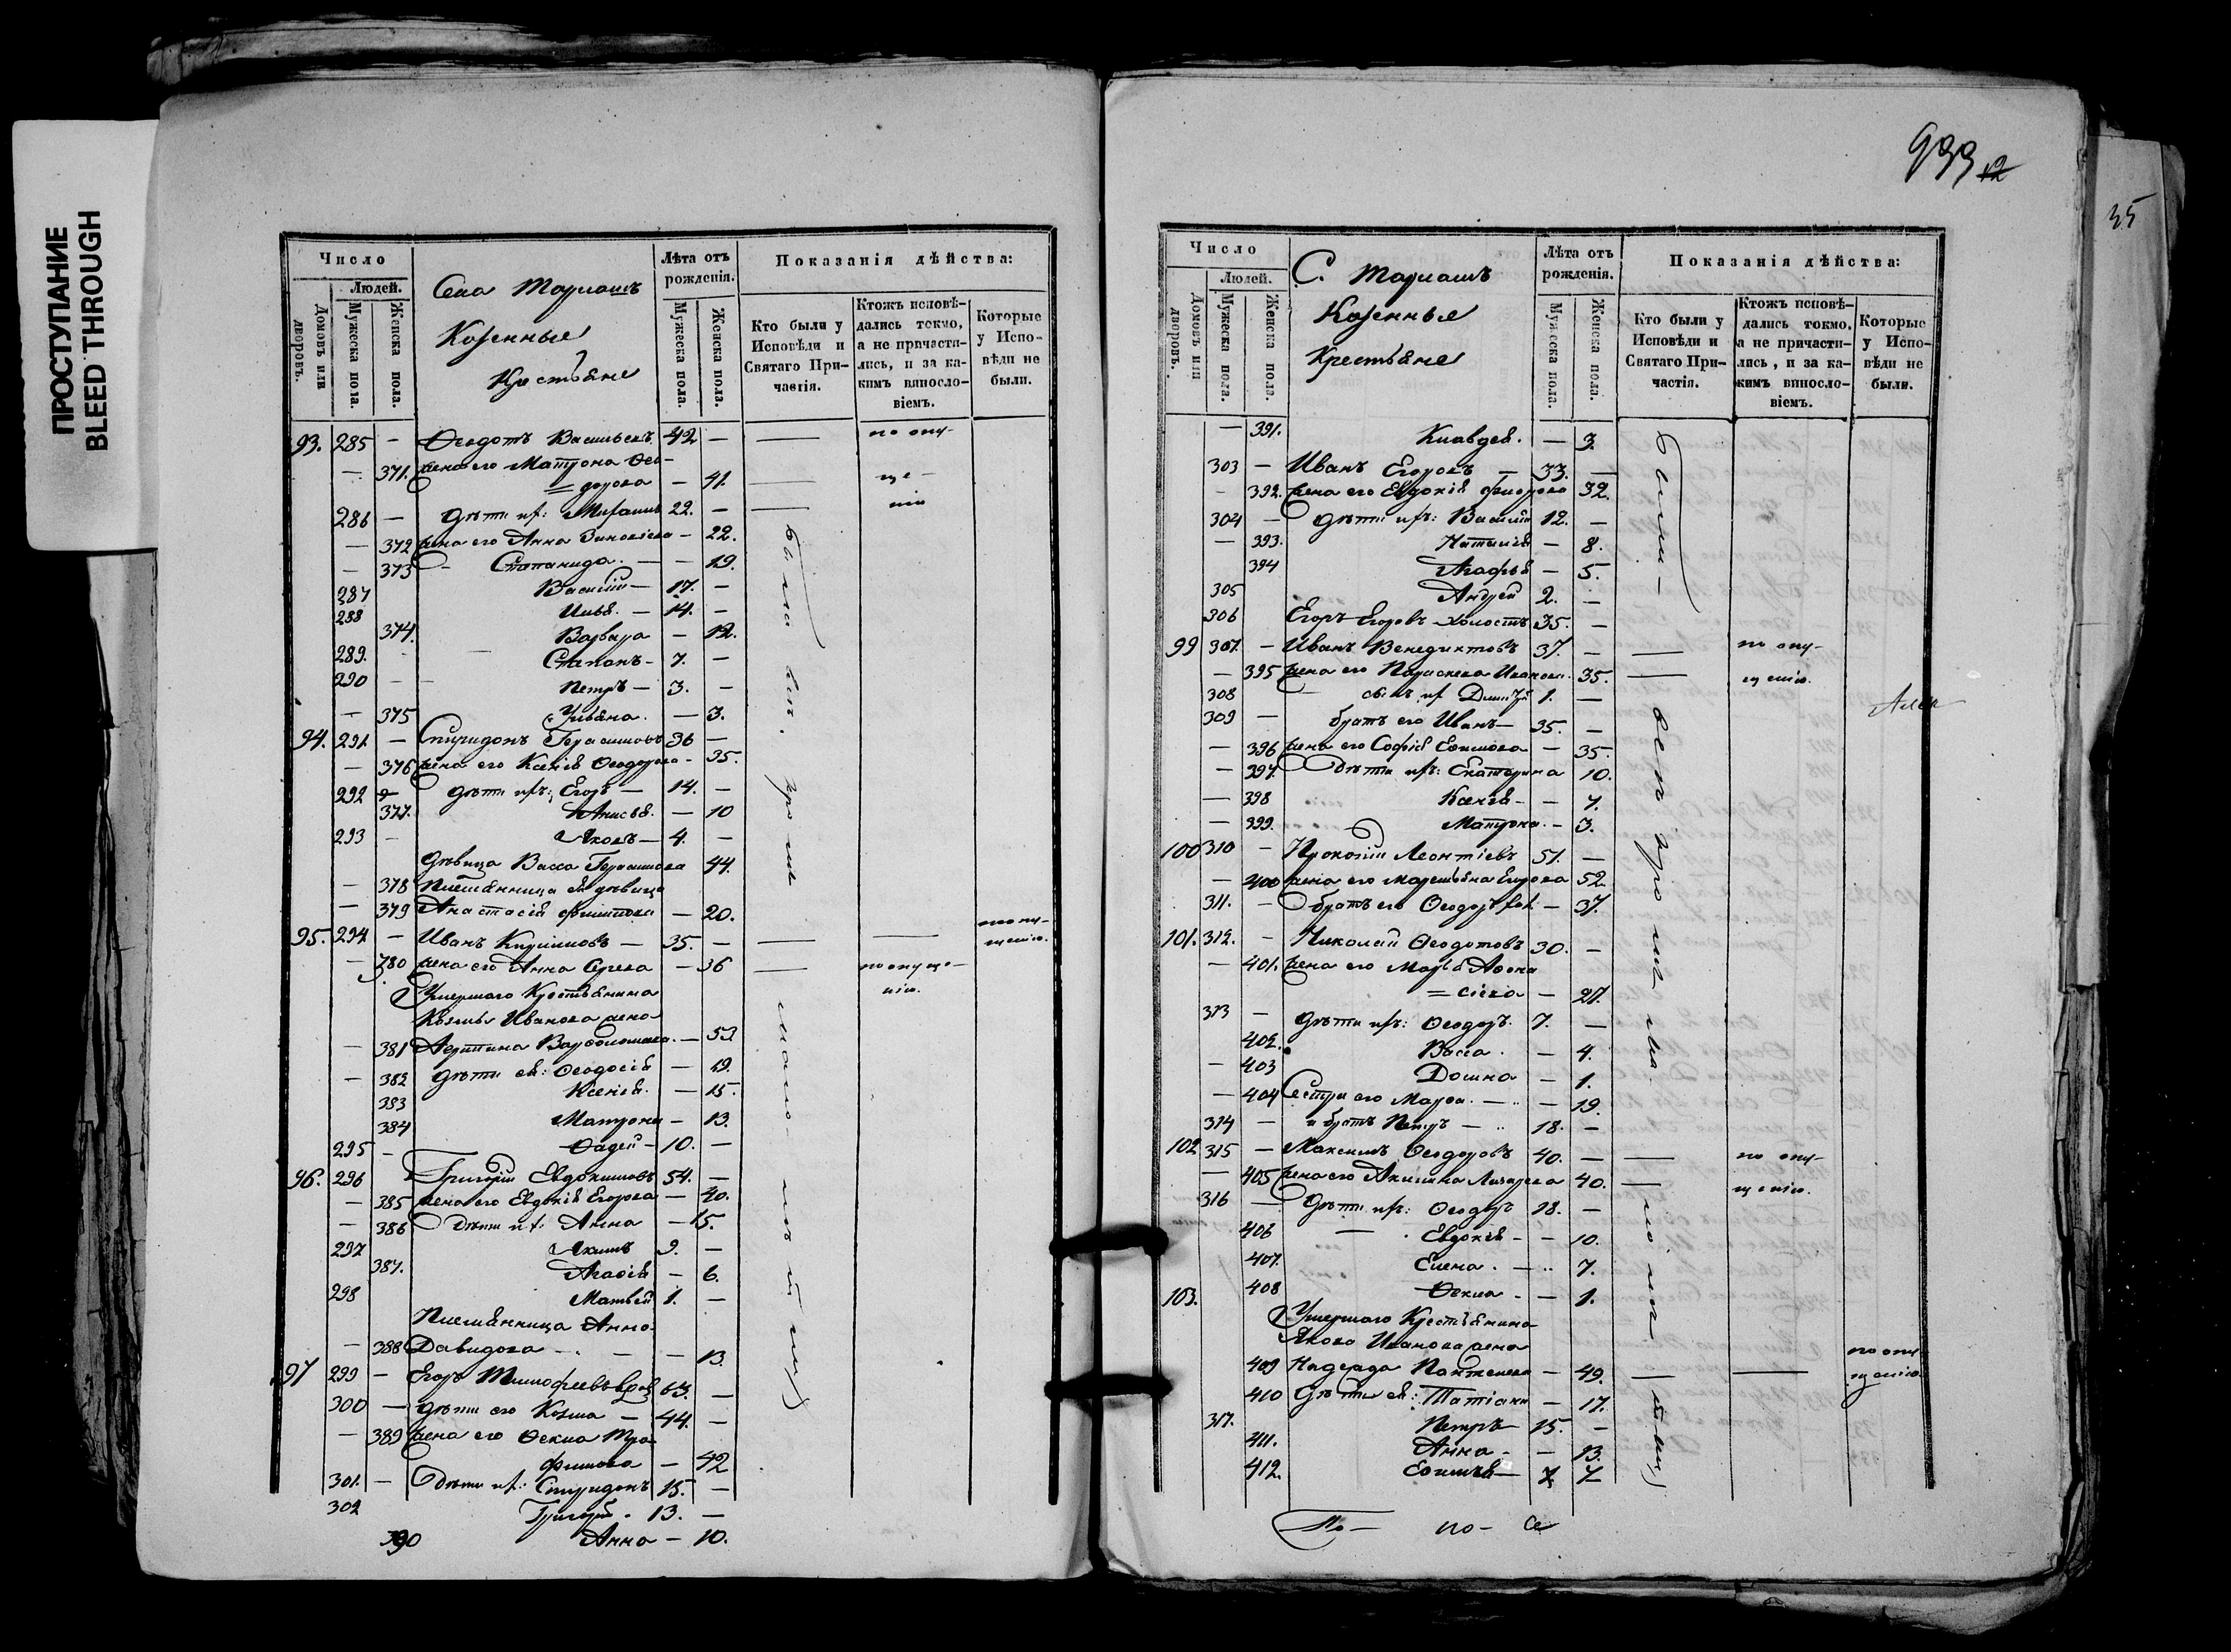 ПРОСТУПАНИЕ
BLEED THROUGH
Число
Людей.
Домовъ или дворовъ.
Мужеска пола.
Женска пола.
Села
Казенные
Крестьяне
Лѣта отъ рожденія.
Мужеска пола.
Женска пола.
Показанія дѣйства:
Кто были у Исповѣди и Святаго Причастія.
Ктожъ исповѣдались токмо, а не причастились, и за какимъ винословіемъ.
Которые у Исповѣди не были.
93. 285 – Ѳеодотъ Васильевъ 42 – — по опу-
– 371. жена его Матрона Ѳео- — ще-
= дорова – 41. нію
286 – дѣти ихъ: 22. –
– 372 жена его Анна Зиновіева – 22.
– 373 – Стапанида – 19.
287 Василій – 17. –
288 Илья – 14. –
374. Варвара – 12.
289. – Стапанъ – 7. –
290 – Петръ – 3. –
– 375 Ульяна. – 3.
94. 291 – Спиридонъ Герасимовъ 36 –
– 376 жена его Ксенія Ѳеодорова – 35.
292 дѣти ихъ: Егоръ – 14. –
377. Анисья – 10
293 – Яковъ – 4. –
дѣвица Васса Герасимова 44.
– 378 племянница ея дѣвица
– 379 Анастасія Филипова – 20.
95. 294 – Иванъ Кириловъ – 35. – — — по опу-
щенію.
– 380 жена его Анна – 36 — по опуще-
нію.
Умершаго Крестьянина
Козьмы Иванова жена
– 381 Варѳоломеева – 53
– 382 дѣти ея: Ѳеодосія – 19.
383 Ксенія – 15.
384 Матрона – 13.
295 – Ѳадей – 10. –
96. 296 Григорій Евдокимовъ 54. –
– 385 жена его Евдокія Егорова – 40.
– 386 дѣти ихъ: Анна – 15.
297 Якимъ 9. –
387. Агафія – 6.
298 Матвей 1. –
Племянница Анна
– 388 Давидова – 13.
97 299 – Егоръ Тимофеевъ вдов. 63. –
300 – дѣти его Козма – 44. –
– 389 жена его Ѳекла Тро-
фимова – 42
301. – дѣти ихъ: Спиридонъ 15. –
302 Григорій – 13. –
390 Анна – 10.
были вси. кро ме
мало лѣт них
933 12
35
Число
Людей.
Домовъ или дворовъ.
Мужеска пола.
Женска пола.
С.
Казенные
Крестьяне
Лѣта отъ рожденія.
Мужеска пола.
Женска пола.
Показанія дѣйства:
Кто были у Исповѣди и Святаго Причастія.
Ктожъ исповѣдались токмо, а не причастились, и за какимъ винословіемъ.
Которые у Исповѣди не были.
– 391. Клавдея. – 3.
303 – Иванъ Егоровъ – 33. –
– 392. жена его Евдокія 32.
304 – дѣти ихъ: Василій 12. –
– 393. Наталія – 8.
394 Агафья – 5.
305 Андрей 2. –
306 Егоръ Егоровъ холостъ 35. –
99 307. – Иванъ Венедиктовъ 37. – — по опу-
– 395 жена его Параскева Иванова 35. — щенію.
308 сынъ их 1. –
309 – братъ его Иванъ – 35. –
– 396 жена его Софія – 35.
– 397. дѣти ихъ: Екатерина 10.
– 398 Ксенія – 7.
– 399. Матрона – 3.
100 310 – Прокопій Леонтіевъ 51. –
– 400 жена его 52.
311. – братъ его Ѳеодоръ – 37.
101. 312. – Николай Ѳеодотовъ 30. –
– 401. жена его Марья Аѳона
= сіева – 27.
313 – дѣти ихъ: Ѳеодоръ 7. –
402. Васса. – 4.
– 403 Домна – 1.
– 404 Сестра его Марѳа – 19.
314 – и братъ Петръ – 18. –
102 315 – Максимъ Ѳеодоровъ 40. – — по опу-
– 405 жена его Акилина 40. — щенію.
316 – дѣти ихъ: Ѳеодоръ 18. –
406 – Евдокія – – 10.
407. Елена – 7.
408 Ѳекла – – 1.
103. Умершаго Крестьянина
Якова Иванова жена
409 Надежда – 49. — — по опу-
щенію
410 дѣти ея: Татіана – 17.
317. Петръ 15. –
411. Анна – – 13.
412. 7
были – всѣ кро ме ма
ло лет нихъ
По – по –